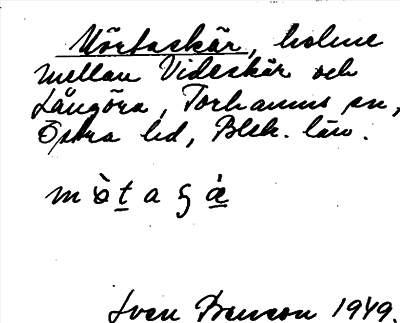 Mörtaskär, holme
mellan Videskär och
Långöra, Torhamns sn,
Östra hd, Blek. län.
m ò t a ʂ æ̀
Sven Benson 1949.